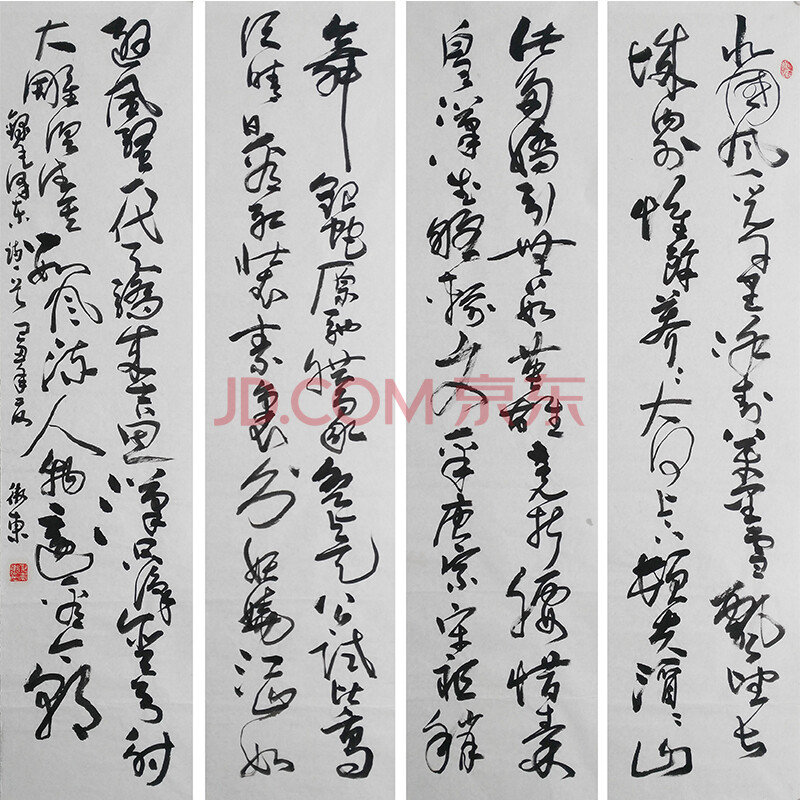 北國风光千里冰封万里雪飘望长
城内外惟馀莽莽大河上下顿失滔滔山
此多娇引無数英雄竞折腰惜秦
皇汉武略输文采唐宗宋祖稍
舞银蛇原驰蜡象欲与天公试比高
须晴日看红装素裹分外妖娆江山如
逊风骚一代天骄成吉思汗只识弯弓射
大雕俱往矣数风流人物还看今朝
录毛泽东词一首 己丑年
JD.COM 京东